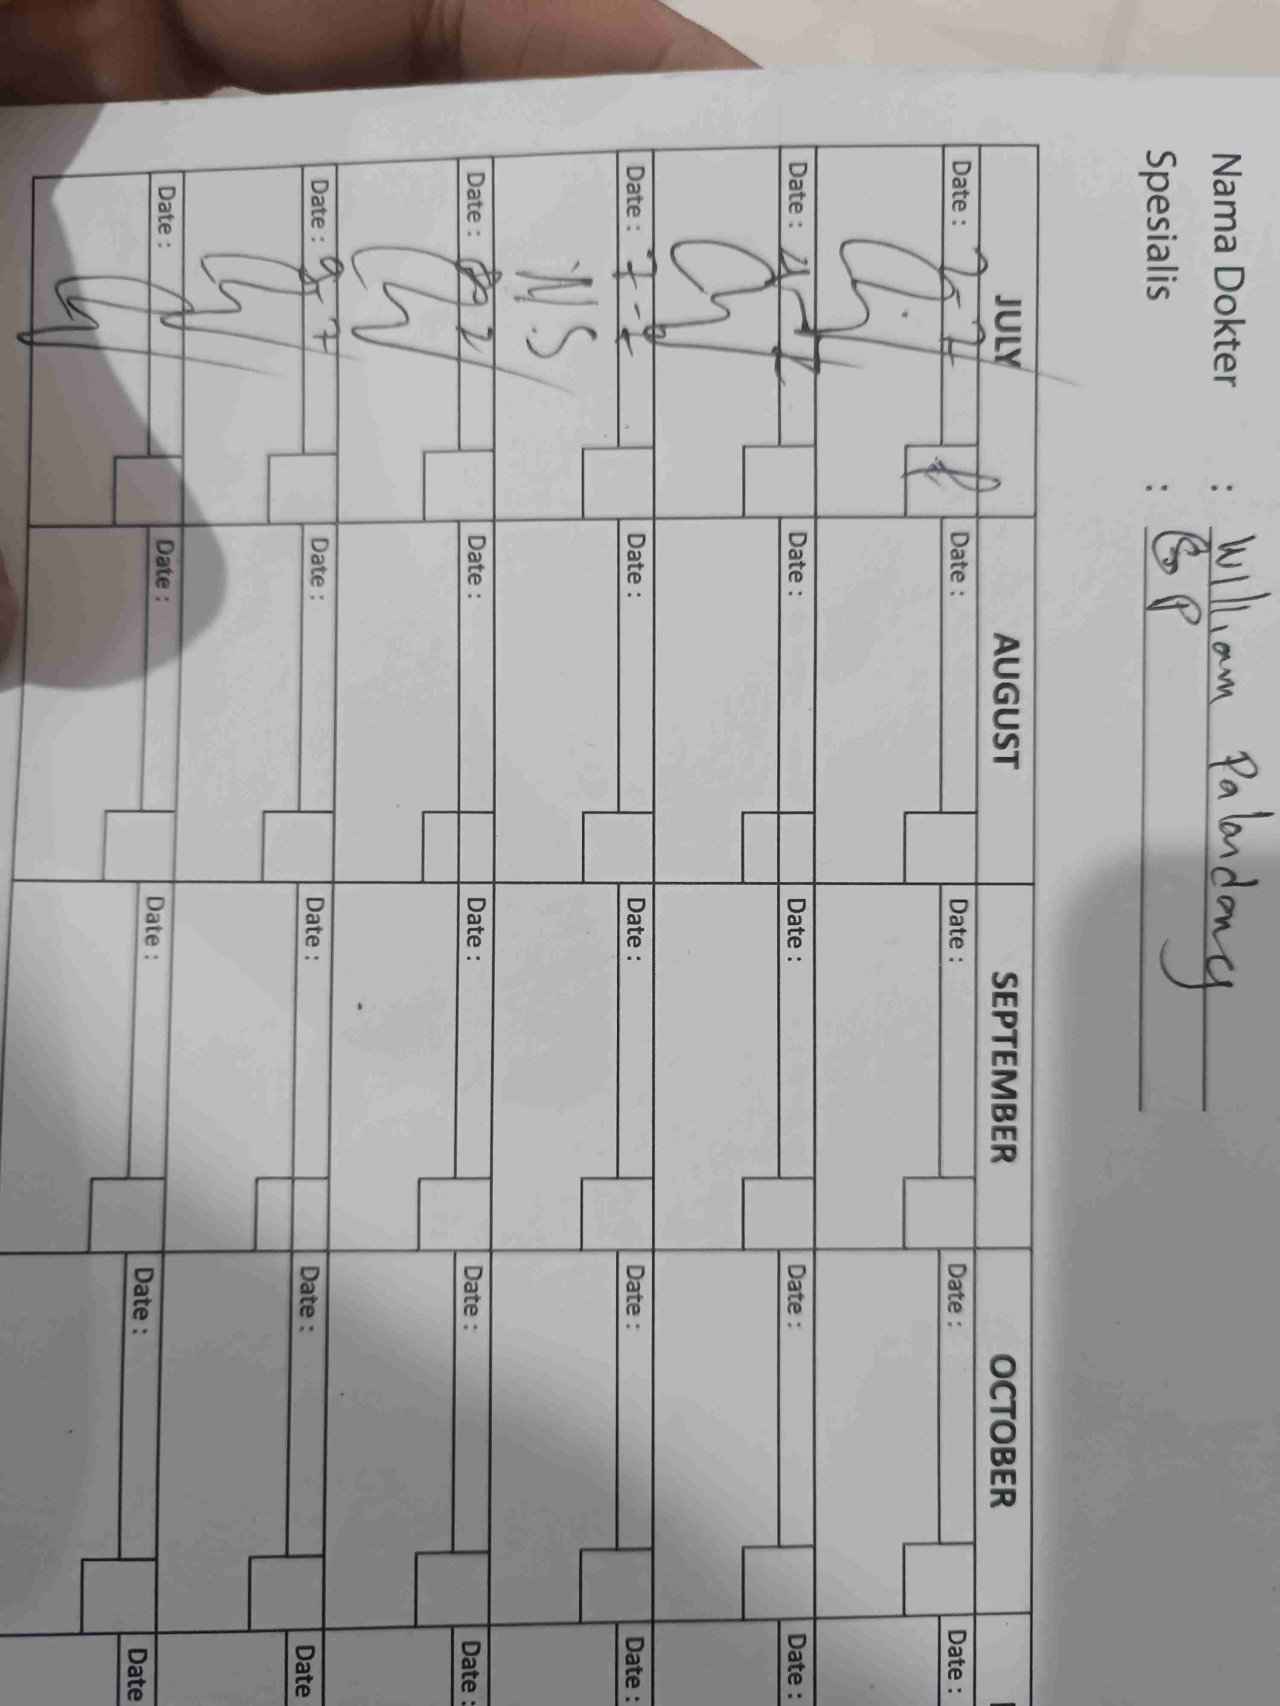 Nama Dokter : William Palandeng
Spesialis : GP
JULY AUGUST SEPTEMBER OCTOBER
Date : Date : Date : Date : Date :
Date : Date : Date : Date : Date :
Date : 7-7 Date : Date : Date : Date :
N.S
Date : Date : Date : Date : Date :
Date : 9-7 Date : Date : Date : Date
Date : Date : Date : Date : Date